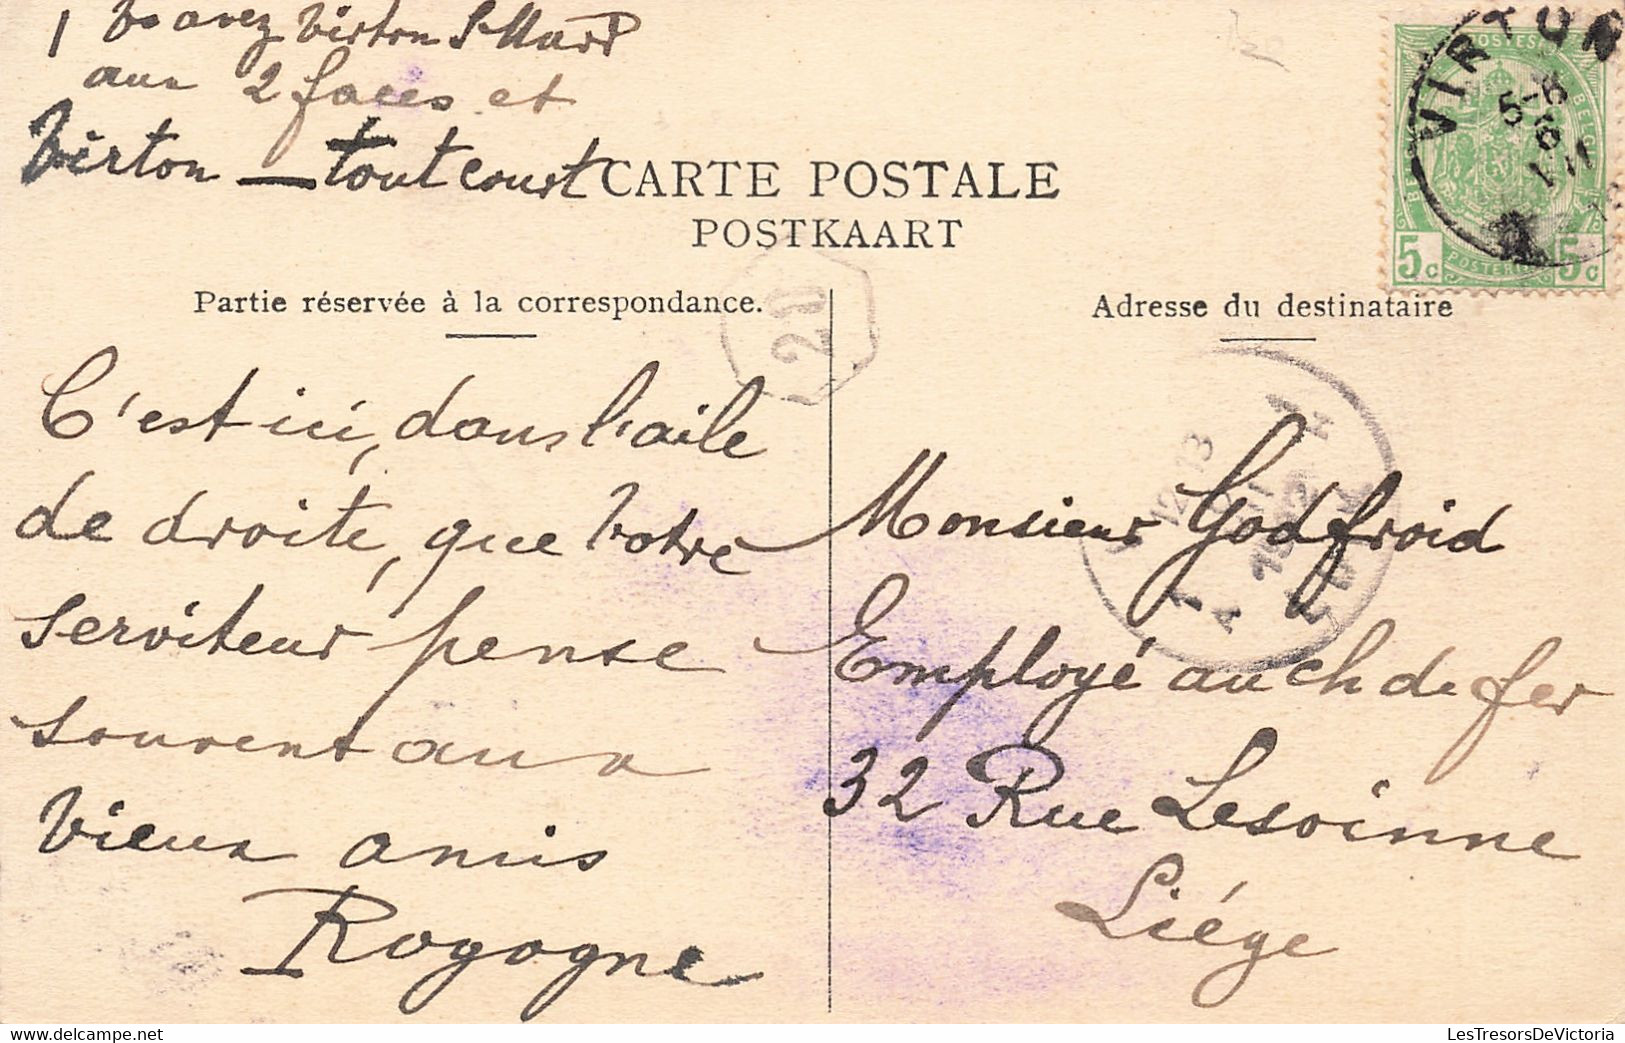 Vs avez Virton St Mard
aux 2 faces et
Virton — tout court
CARTE POSTALE
POSTKAART
Partie réservée à la correspondance.
C'est ici, dans l'aile
de droite, que Votre
serviteur pense
souvent aux
vieux amis
Rogogne
Adresse du destinataire
Monsieur Godfroid
Employé au ch de fer
32 Rue Lesoinne
Liége
VIRTON
5c
5c
20
LesTresorsDeVictoria.com